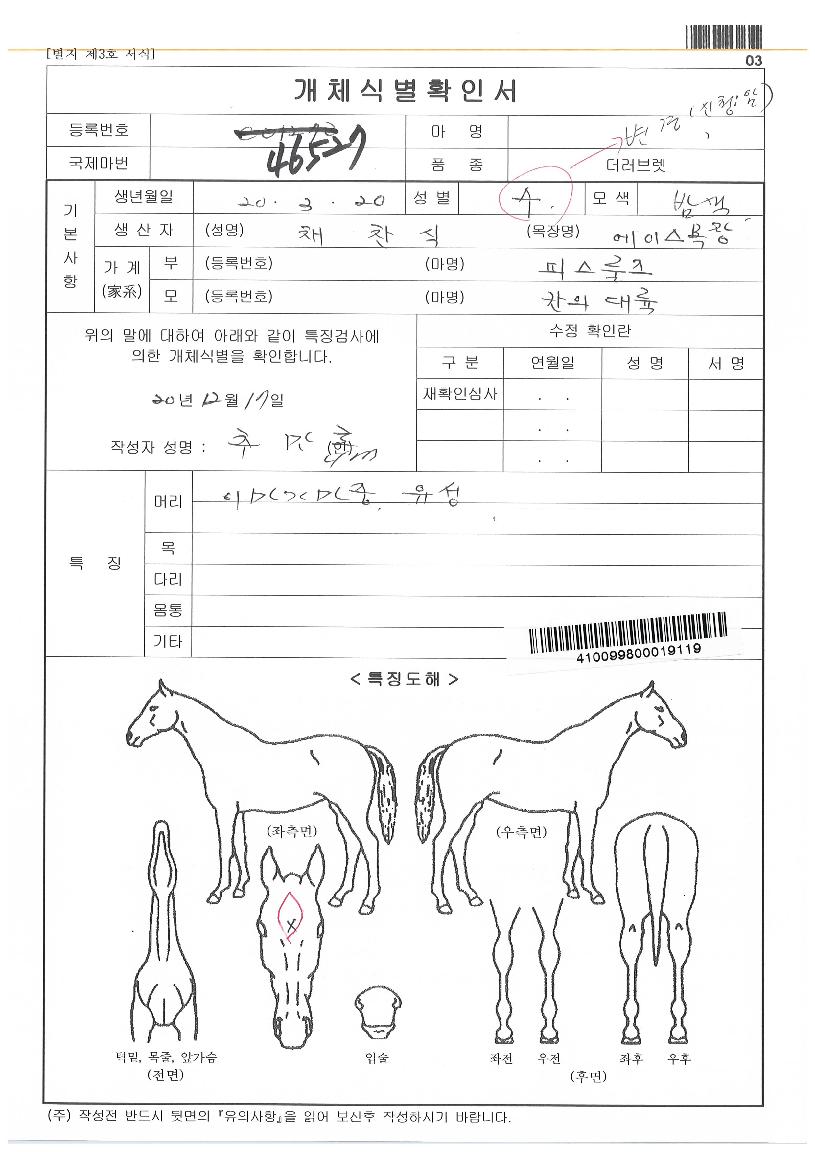 [별지 제3호 서식]
03
개체식별확인서
등록번호 46527 마 명
변경 (신청:암)
국제마번 품 종 더러브렛
기본사항
생년월일 20 . 3 . 20 성 별 수 . 모 색 밤색
생 산 자 (성명) 채 찬 식 (목장명) 에이스목장
가 계 (家系) 부 (등록번호) (마명) 피스룰즈
모 (등록번호) (마명) 찬의 대륙
위의 말에 대하여 아래와 같이 특징검사에
의한 개체식별을 확인합니다.
20년 12월 17일
작성자 성명 : (인)
수정 확인란
구 분 연월일 성 명 서 명
재확인심사 . .
. .
. .
특 징
머리 유성
목
다리
몸통
기타
410099800019119
< 특징도해 >
(좌측면) (우측면)
턱밑, 목줄, 앞가슴
(전면)
입술
좌전 우전 좌후 우후
(후면)
(주) 작성전 반드시 뒷면의 『유의사항』을 읽어 보신후 작성하시기 바랍니다.